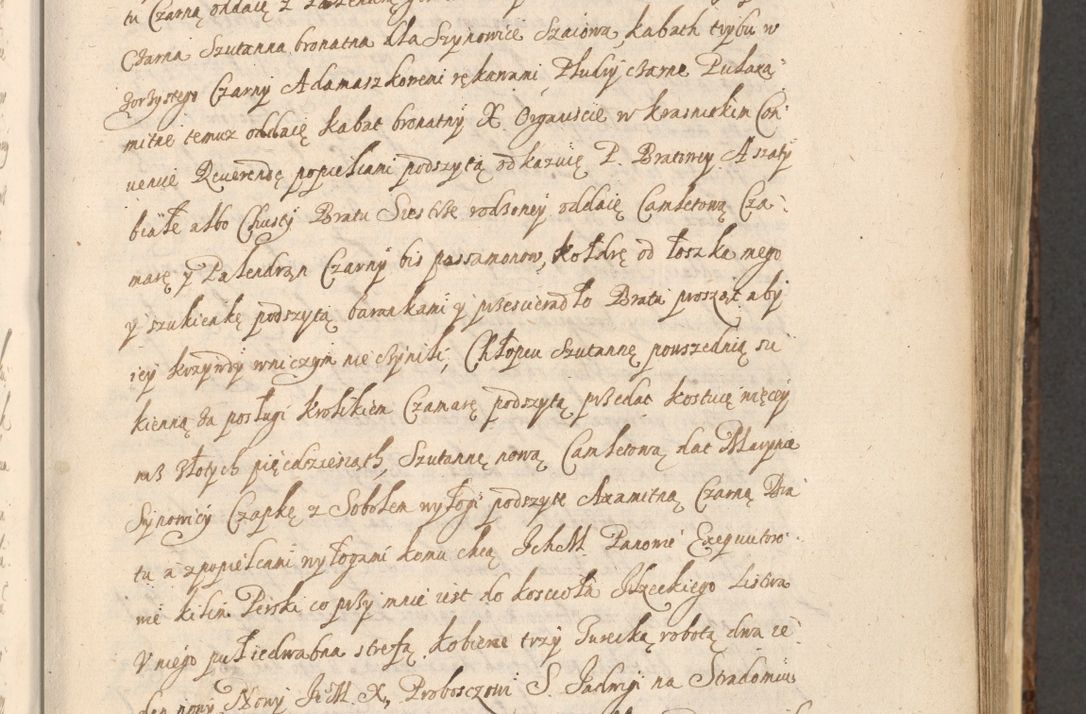 tu Czarną oddaię z
Czarna Szutanna bronatna dla Szynowice Szaiowa, kabath trybu w
Czarny Adamaszkowemi rękawami, Pludry czarne Pulaxa
mitne temuz oddaię kabat bronatny X. Organiscie w krasnickim Con
uenuie Reuerendę popielicami podszytą odkazuię P. Bratowey A szaty
białe albo Chusty Bratu Siestrze rodzoney oddaię Camletową Cza
marę y Palendran Czarny bis passamonow, kołdrę od łoszka mego
y szukienkę podszytą barankami y przescieradło Brata proszę aby
iey krzywdy wniczym nie czynili, Chłopcu Szutannę powszednią su
kienną za posługi krolikiem Czamarę podszytą przedac kostuię więcey
niz złotych pięcdziesiąth, Szutannę nową Camletową dac Marynie
Synowicy Czapkę z Sobolem wyłogi podszytę Axamitną Czarną Bra
tu a zpopielicami wyłogami komu chcą JchM Panowie Exequutoro
wie kilim Perski co przy mnie iest do koscioła Jłzeckiego Listwa
V niego pułiedwabna strefą kobierce trzy Turecką robotą dwa ie
den nowy Nowy JeM X, Proboszczowi S. Jadwigi na Stradomiu